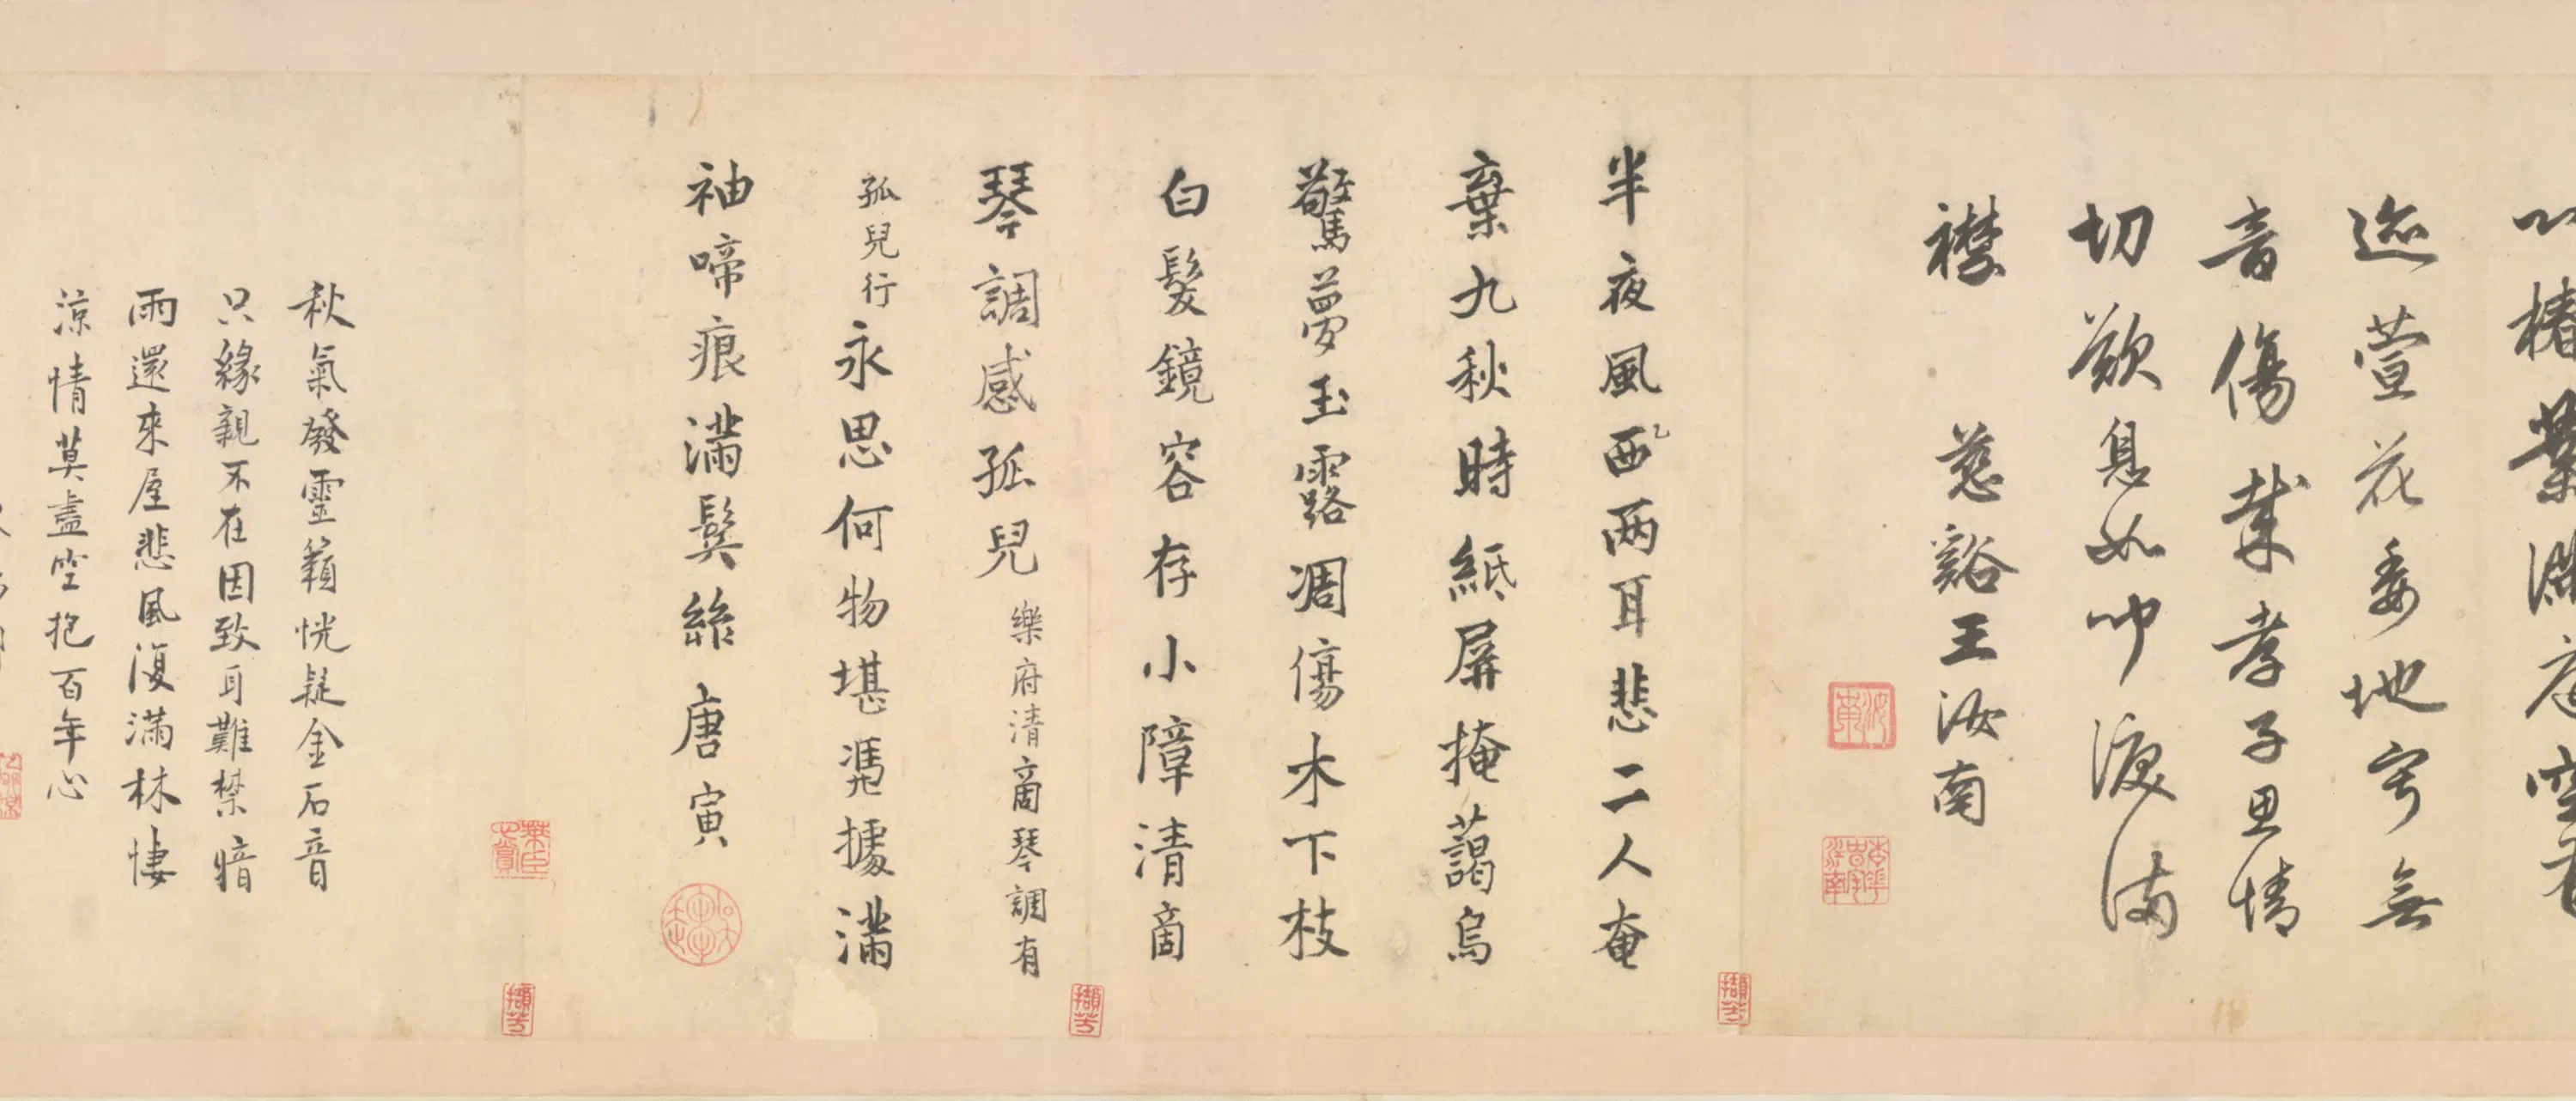 椿葉滿庭空有
迹萱花委地寂無
音傷哉孝子思情
切歎息如吟淚滿
襟
慈谿王汝南
半夜風西兩耳悲二人奄
棄九秋時紙屏掩藹烏
驚夢玉露凋傷木下枝
白髮鏡容存小障清商
琴調感孤兒 樂府清商琴調有
孤兒行 永思何物堪馮據滿
袖啼痕滿鬢絲 唐寅
秋氣發靈籟恍疑金石音
只緣親不在因致耳難禁暗
雨還來屋悲風復滿林悽
涼情莫盡空抱百年心
擷芳
擷芳
擷芳